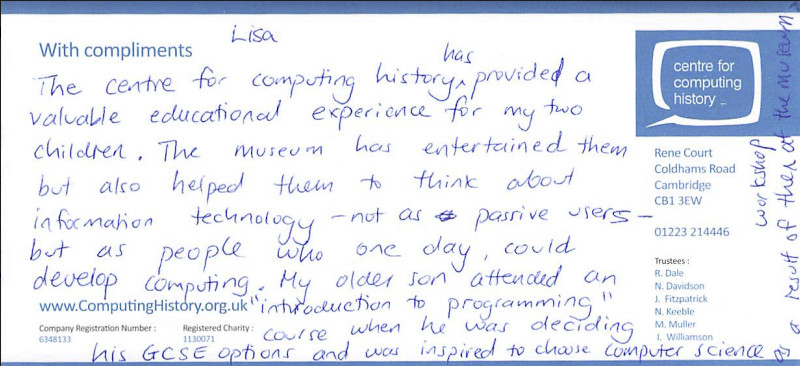 With compliments
Lisa
The centre for computing history ^has provided a
valuable educational experience for my two
children. The museum has entertained them
but also helped them to think about
information technology - not as passive users -
but as people who one day, could
develop computing. My older son attended an
"introduction to programming"
course when he was deciding
his GCSE options and was inspired to choose computer science
as a result of the at the museum
workshop
centre for
computing
history _
Rene Court
Coldhams Road
Cambridge
CB1 3EW
01223 214446
Trustees :
R. Dale
N. Davidson
J. Fitzpatrick
N. Keeble
M. Muller
I. Williamson
www.ComputingHistory.org.uk
Company Registration Number :
6348133
Registered Charity :
1130071